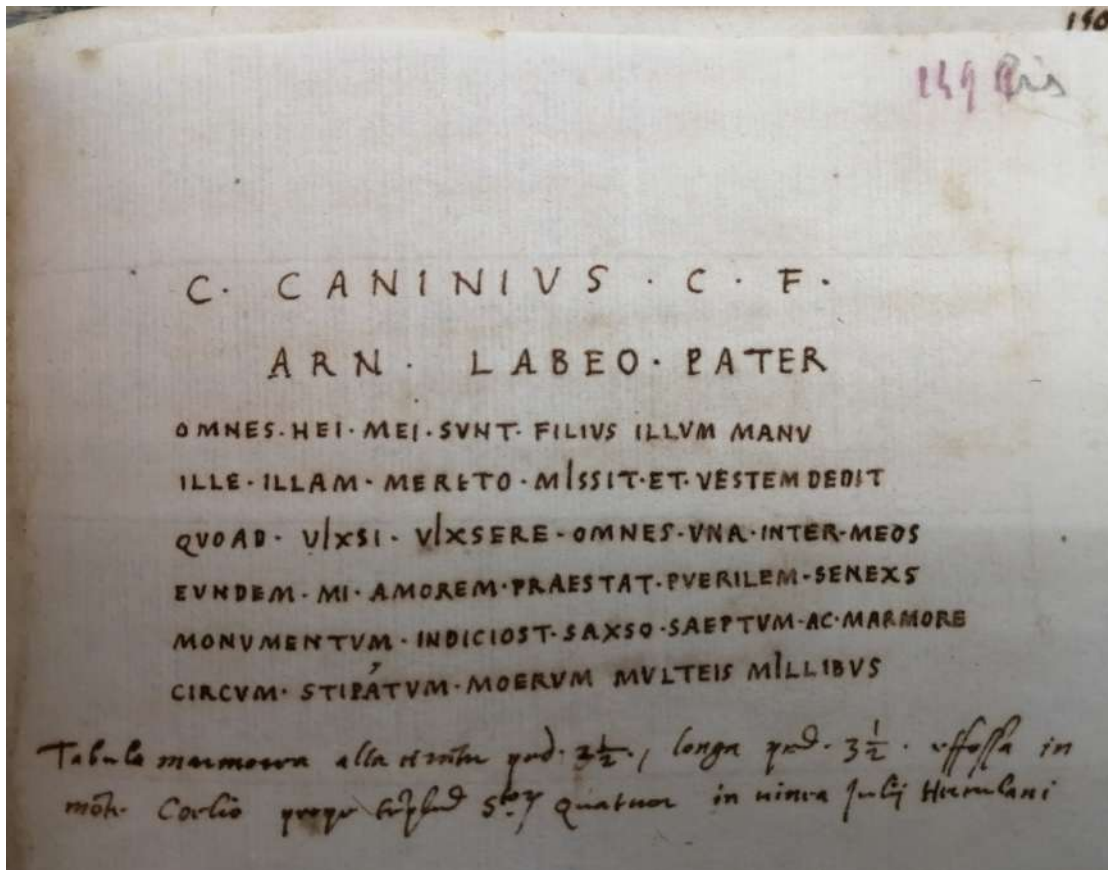 150
149 Bis
C. CANINIVS · C · F.
ARN · LABEO · PATER
OMNES · HEI · MEI · SVNT · FILIVS ILLVM MANV
ILLE · ILLAM · MERETO · MISSIT · ET · VESTEM DEDIT
QVOAD · VIXSI · VIXSERE · OMNES · VNA · INTER · MEOS
EVNDEM · MI · AMOREM · PRAESTAT · PVERILEM · SENEXS
MONVMENTVM · INDICIOST · SAXSO · SAEPTVM · AC · MARMORE
CIRCVM · STIPÁTVM · MOERVM MVLTEIS MILLIBVS
Tabula marmorea alta longa ped. 3½. effossa in
Coelio prope Quatuor in vinea Julij Herculani